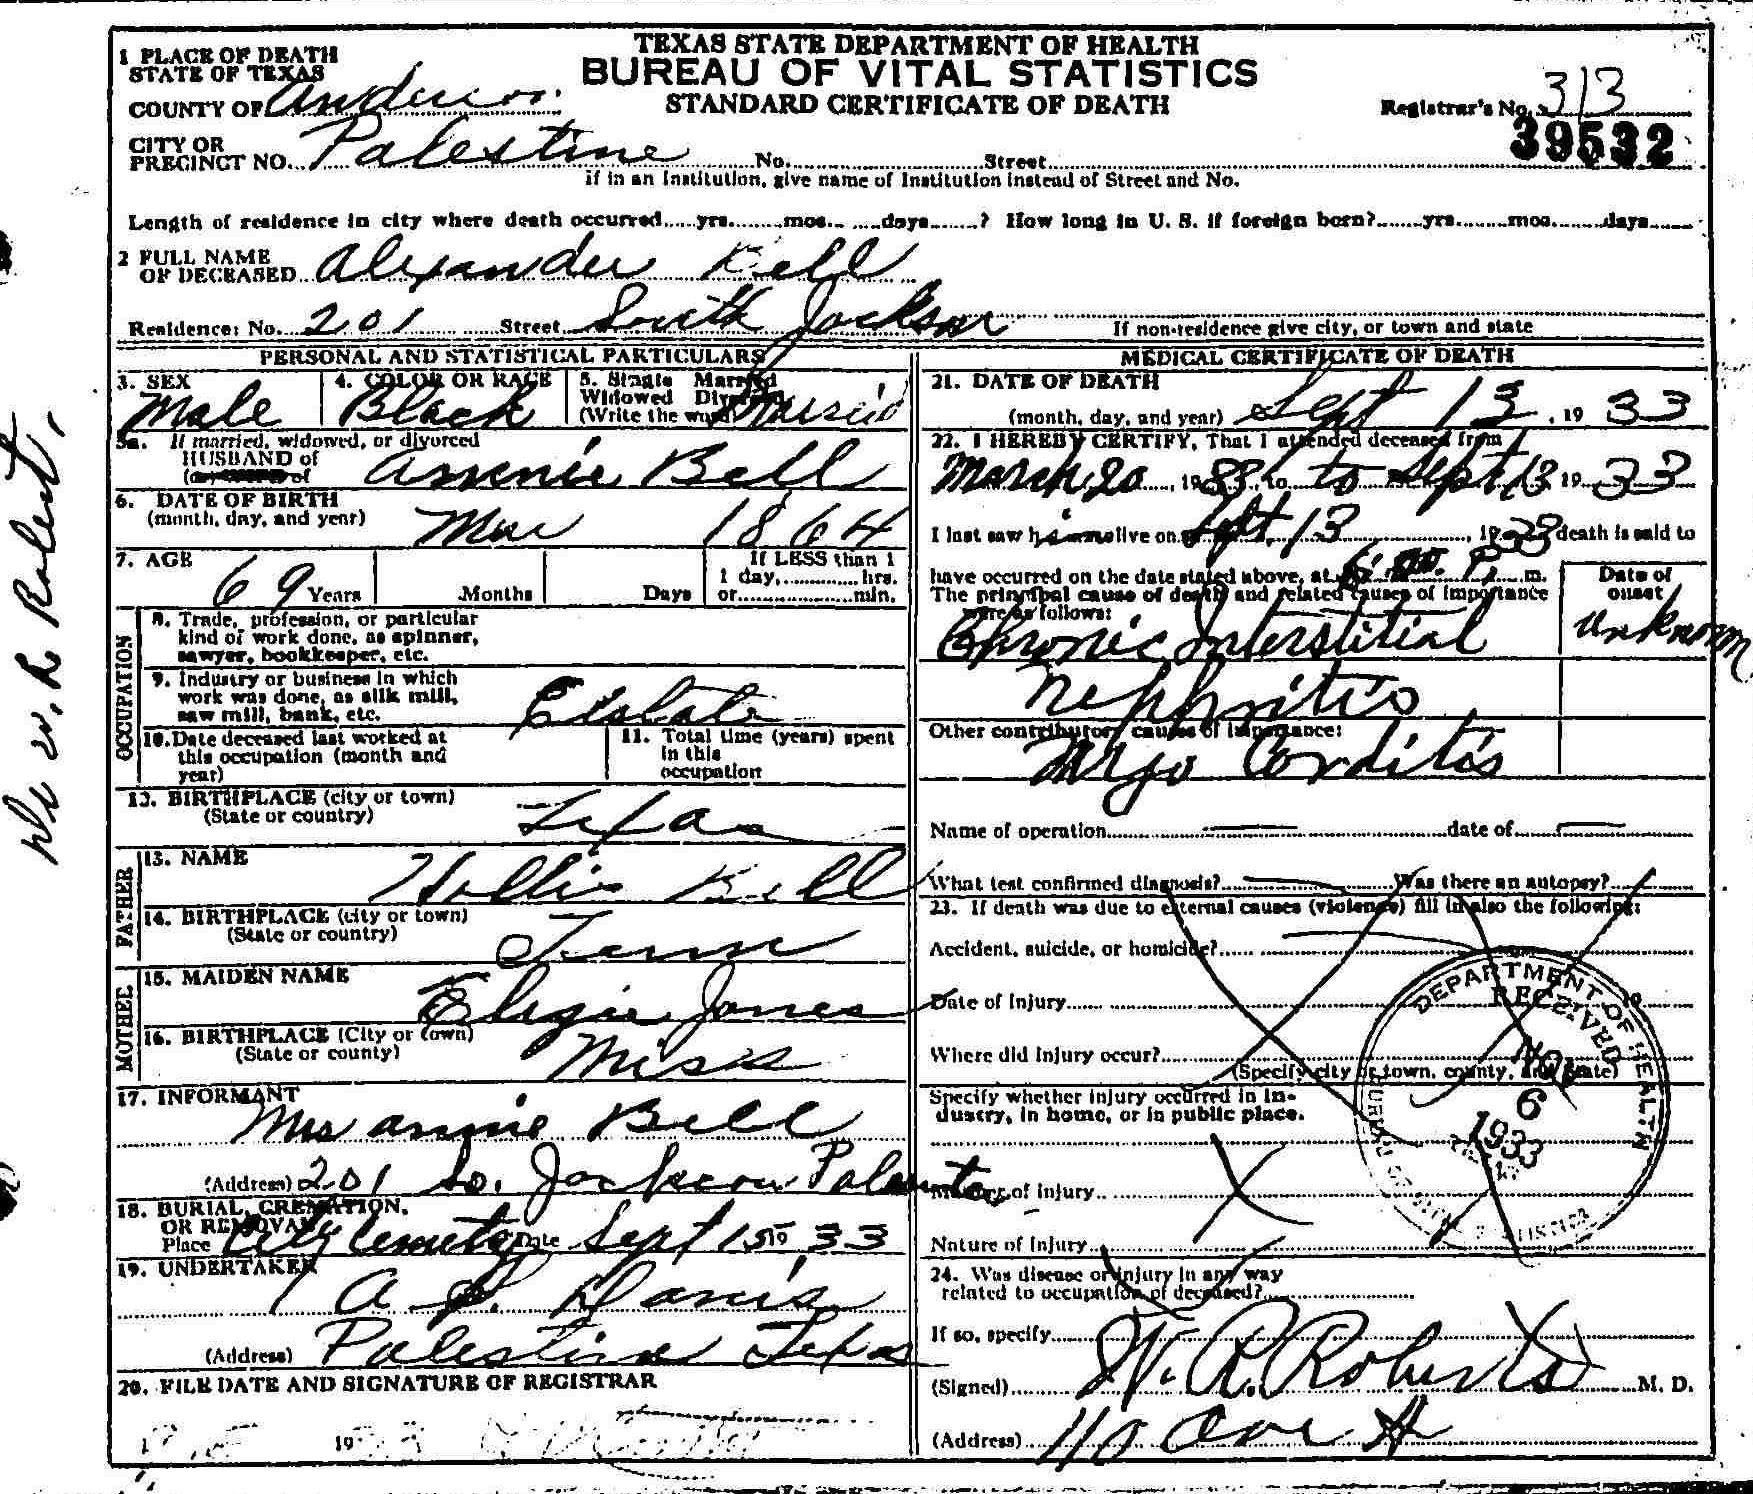 TEXAS STATE DEPARTMENT OF HEALTH
BUREAU OF VITAL STATISTICS
STANDARD CERTIFICATE OF DEATH
1 PLACE OF DEATH
STATE OF TEXAS
COUNTY OF Anderson
Registrar's No. 313
39532
CITY OR
PRECINCT NO. Palestine No. Street
if in an Institution, give name of Institution instead of Street and No.
Length of residence in city where death occurred yrs. mos. days ? How long in U. S. if foreign born? yrs. mos. days
2 FULL NAME
OF DECEASED Alexander Bell
Residence: No. 201 Street South Jackson If non-residence give city, or town and state
PERSONAL AND STATISTICAL PARTICULARS
3. SEX
Male
4. COLOR OR RACE
Black
5. Single Married
Widowed Divorced
(Write the word) Married
5a. If married, widowed, or divorced
HUSBAND of
Annie Bell
6. DATE OF BIRTH
(month, day, and year) Mar 1864
7. AGE
69 Years Months Days
If LESS than 1
1 day, hrs.
or min.
OCCUPATION
8. Trade, profession, or particular
kind of work done, as spinner,
sawyer, bookkeeper, etc.
9. Industry or business in which
work was done, as silk mill,
saw mill, bank, etc.
10. Date deceased last worked at
this occupation (month and
year)
11. Total time (years) spent
in this
occupation
12. BIRTHPLACE (city or town)
(State or country) Texas
FATHER
13. NAME Hollis Bell
14. BIRTHPLACE (city or town)
(State or country) Tenn
MOTHER
15. MAIDEN NAME Jones
16. BIRTHPLACE (City or town)
(State or county) Miss
17. INFORMANT
Mrs Annie Bell
(Address) 201 So. Jackson
18. BURIAL, CREMATION,
OR REMOVAL
Place City Cemetery Date Sept 15 19 33
19. UNDERTAKER
A Davis
(Address) Palestine Texas
20. FILE DATE AND SIGNATURE OF REGISTRAR
19
MEDICAL CERTIFICATE OF DEATH
21. DATE OF DEATH
(month, day, and year) Sept 13, 19 33
22. I HEREBY CERTIFY, That I attended deceased from
March 20, 19 33, to to Sept, 13 19 33
I last saw him alive on Sept, 13, 19 33 death is said to
have occurred on the date stated above, at P. m.
The principal cause of death and related causes of importance
were as follows:
Date of
onset
Chronic Interstitial
unknown
Nephritis
Other contributory causes of importance:
Myo Corditis
Name of operation date of
What test confirmed diagnosis? Was there an autopsy?
23. If death was due to external causes (violence) fill in also the following:
Accident, suicide, or homicide?
Date of Injury 19
Where did Injury occur?
(Specify city or town, county, and State)
Specify whether injury occurred in in-
dustry, in home, or in public place.
Manner of Injury
Nature of Injury
24. Was disease or injury in any way
related to occupation of deceased?
If so, specify
(Signed) W. R. Roberts M. D.
(Address) 110 Ave A
DEPARTMENT OF HEALTH
RECEIVED
NOV
6
1933